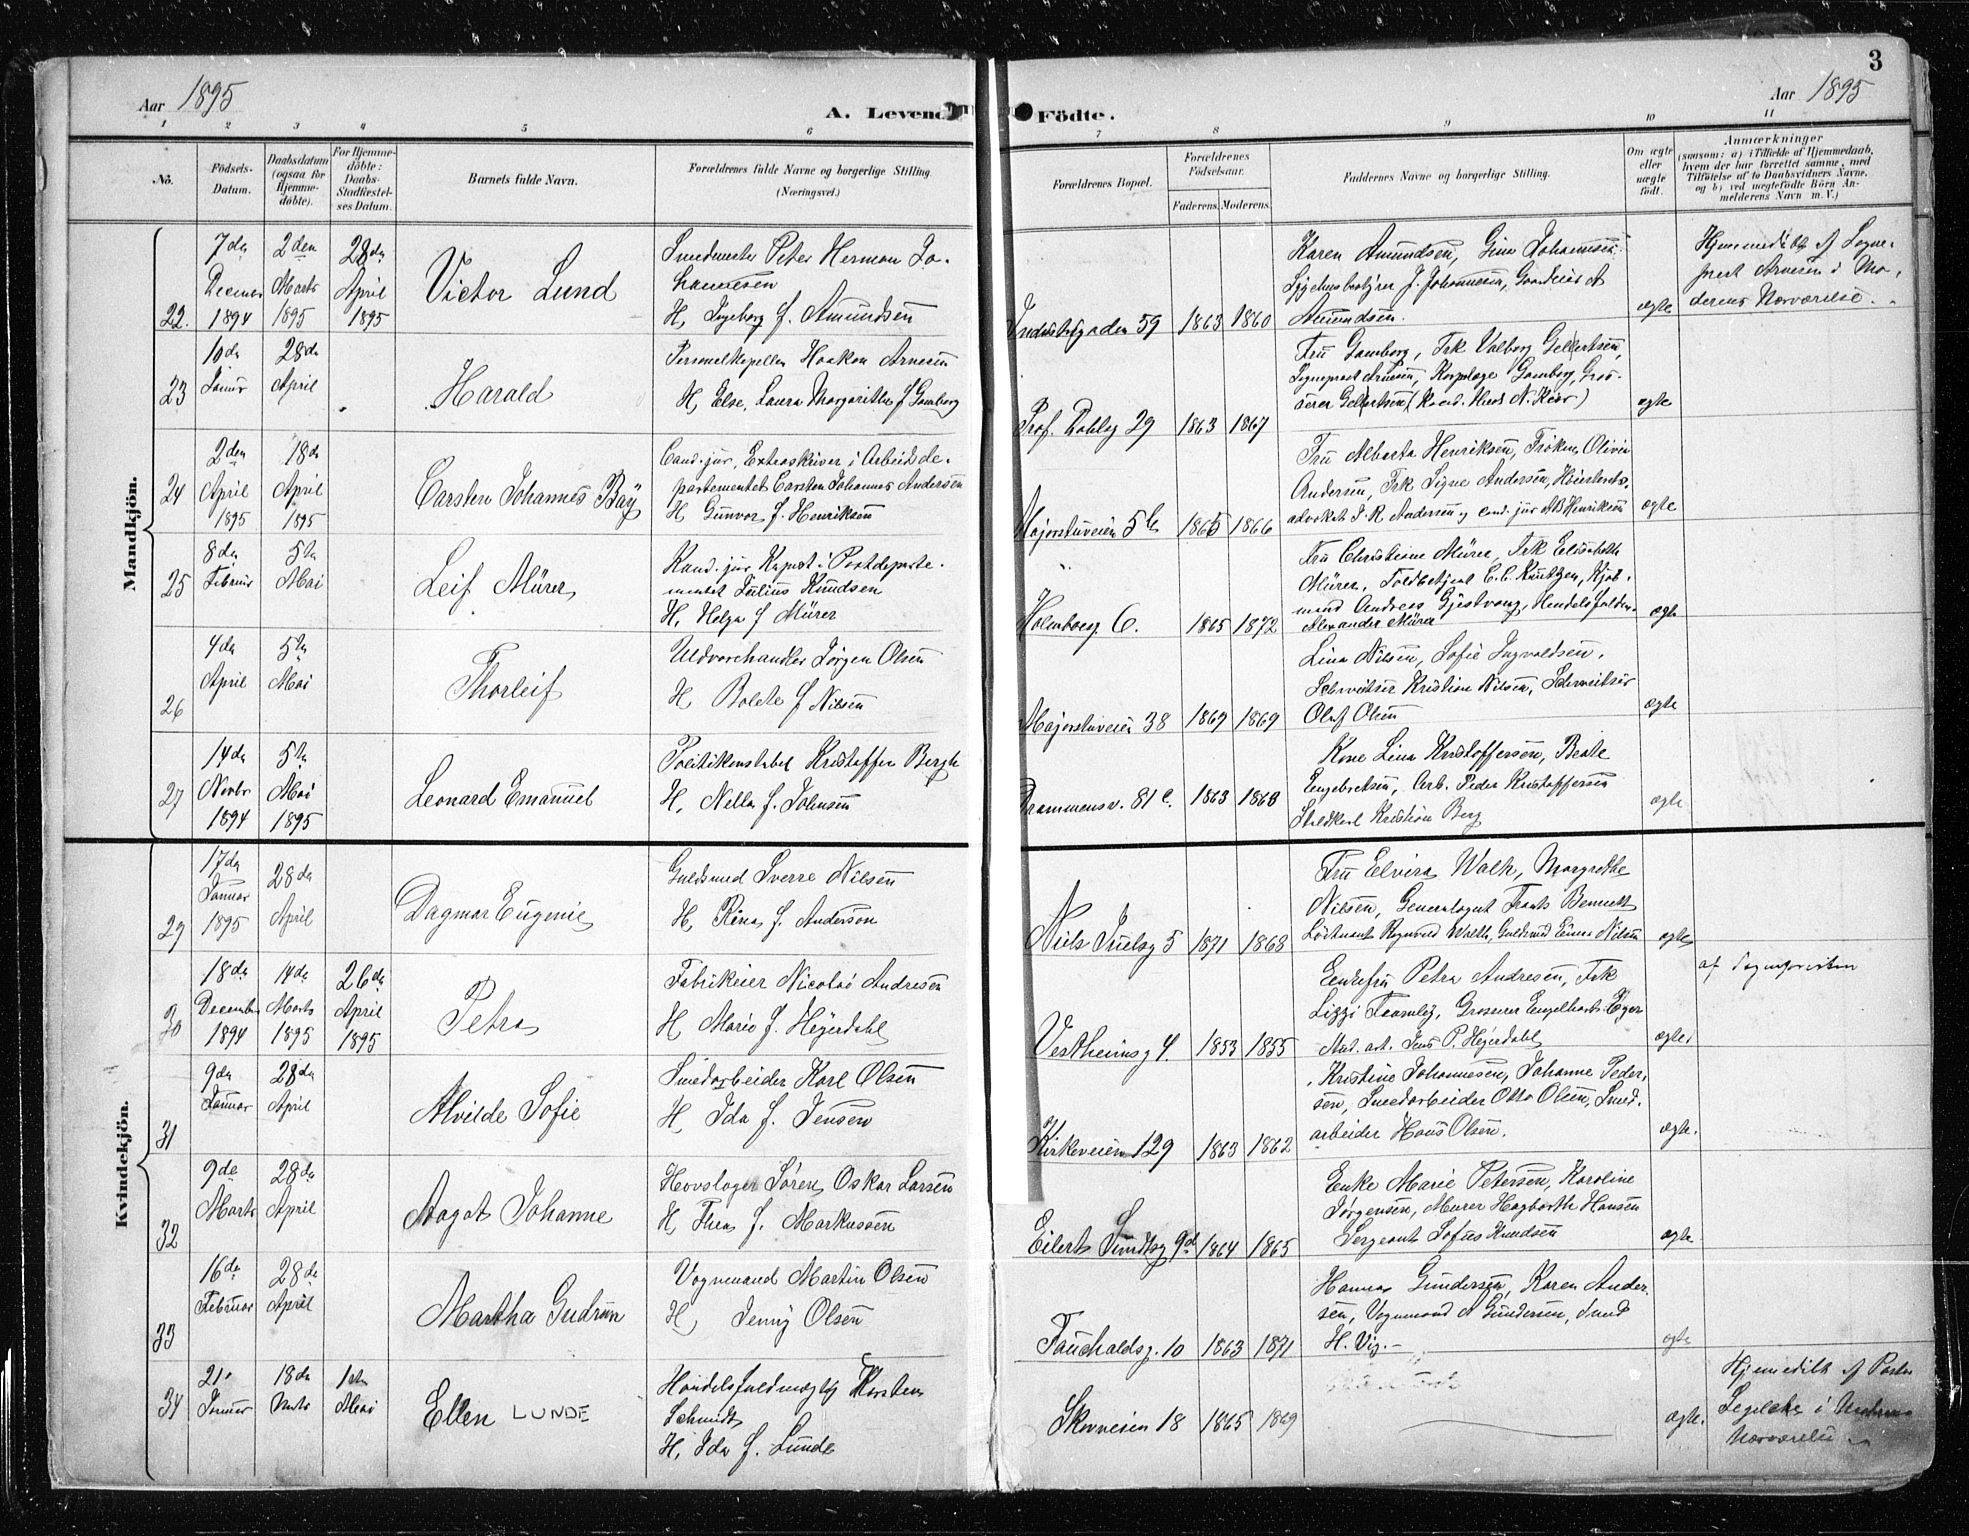 3
Aar 1895
A. Levende
Födte.
Aar 1895
1 2 3 4 5 6 7 8 9 10 11
No.
Födsels-
Datum.
Daabsdatum
(ogsaa for
Hjemme-
döbte).
For Hjemme-
döbte:
Daabs-
Stadfæstel-
ses Datum.
Barnets fulde Navn.
Forældrenes fulde Navne og borgerlige Stilling
(Næringsvei.)
Forældrenes Bopæl.
Forældrenes
Födselsaar.
Faderens.
Moderens.
Faddernes Navne og borgerlige Stilling.
Om ægte
eller
uægte
födt.
Anmærkninger
(saasom: a) i Tilfælde af Hjemmedaab,
hvem der har forrettet samme, med
Tilföielse af to Daabsvidners Navne.
og b) ved uægtefödte Börn An-
melderens Navn m. V.)
Mandkjön.
22.
7de
Decembr
1894
2den
Marts
1895
28de
April
1895
Victor Lund
Smedmester Peter Herman Jo-
hannesen
H, Ingeborg f. Amundsen
59
1863
1860
Karen Amundsen, Gina Johannesen
J. Johannesen,
Amundsen.
ægte
Hjemmedöbt af Sogne-
prest Arnesen i Mo-
derens Nærværelse.
23
10de
Januar
28de
April
Harald
Personelkapellan Haakon Arnesen
H, Else, Laura Margarethe f Gamborg
Prof. Dahls g 29
1863
1867
Fru Gamborg, Frk Valborg Gellertsen,
Sogneprest Arnesen, Korpslæge Gamborg, Gros-
serer Gellertsen
ægte
24
2den
April
1895
18de
April
1895
Carsten Johannes Bay
Cand. jur, Extraskriver i Arbeidsde-
partementet Carsten Johannes Andersen
H Gunvor f. Henriksen
Majorstuveien 5 b
1865
1866
Fru Alberta Henriksen, Frøken Olivia
Andersen, Frk Signe Andersen, Høiesterets-
advokat J. R. Andersen og cand. jur A B Henriksen
ægte
25
8de
Februar
5te
Mai
Leif Mürer
Kand. jur, Kopist i Postdeparte-
mentet Julius Knudsen
H, Helga f Mürer
Holmboesg 6.
1865
1872
Fru Christiane Mürer, Frk Elisabeth
Mürer, Toldbetjent C. C. Knutzen, Kjøb-
mand Andreas Gjestvang, Handelsfuldm.
Alexander Mürer
ægte
26
4de
April
5te
Mai
Thorleif
Uldvarehandler Jørgen Olsen
H Bolete f Nilsen
Majorstuveien 38
1869
1869
Lina Nilsen, Sofie Ingvaldsen,
Schweitser Kristian Nilsen, Schweitser
Olaf Olsen
ægte
27
14de
Novbr
1894
5te
Mai
1895
Leonard Emanuel
Politikonstabel Kristoffer Bergh
H, Nella f. Johnsen
Drammensv. 81 c.
1863
1868
Kone Lina Kristoffersen, Beate
Engebretsen, Arb. Peder Kristoffersen
Staldkarl Kristian Berg
ægte
Kvindekjön.
29
17de
Januar
1895
28de
April
Dagmar Eugenie
Guldsmed Sverre Nilsen
H, Rina f. Anderson
Niels Juelsg 5
1871
1868
Fru Elvira Walh, Margrethe
Nilsen, Generalagent Frants Bennett
Löitnant Ragnvald Walth, Guldsmed Einar Nilsen
ægte
30
18de
December
1894
14de
Marts
1895
26de
April
1895
Petra
Fabrikeier Nicolai Andresen
H Marie f. Heyerdahl
Vestheimsg 4.
1853
1855
Enkefru Petra Andresen, Frk
Lizzi Framley, Grosserer Engelhardt Eger
Stud. art. Jens P. Heyerdahl
ægte
af Sognepresten
31
9de
Januar
28de
April
Alvilde Sofie
Smedarbeider Karl Olsen
H Ida f. Jensen
Kirkeveien 129
1863
1862
Kristine Johannesen, Johanne Peder-
sen, Smedarbeider Otto Olsen, Smed-
arbeider Hans Olsen.
ægte.
32
9de
Marts
28de
April
Aagot Johanne
Hovslager Søren Oskar Larsen
H Thea f. Markussen
Eilert Sundtsg 9d
1864
1865
Enke Marie Petersen, Karoline
Jørgensen, Murer Hagbarth Hansen
Sergeant Sofus Knudsen
ægte
33
16de
Februar
28de
April
Martha Gudrun
Vognmand Martin Olsen
H Jenny Olsen
Fauchaldsg. 10
1863
1871
Hanna Gundersen, Karen Ander-
sen, Vognmand A Gundersen, Smed
H. Vig.
ægte
34
21
Januar
18de
Marts
1ste
Mai
Ellen LUNDE
Handelsfuldmægtig Karsten
Schmidt
H, Ida f. Lunde
Skovveien 18
1865
1869
ægte.
Hjemmedöbt af Pastor
i Moderens
Nærværelse